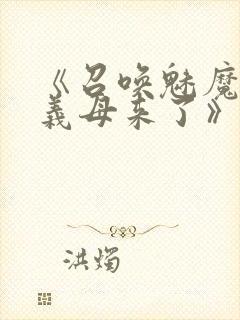 《召唤魅魔
義母来了》
洪烛